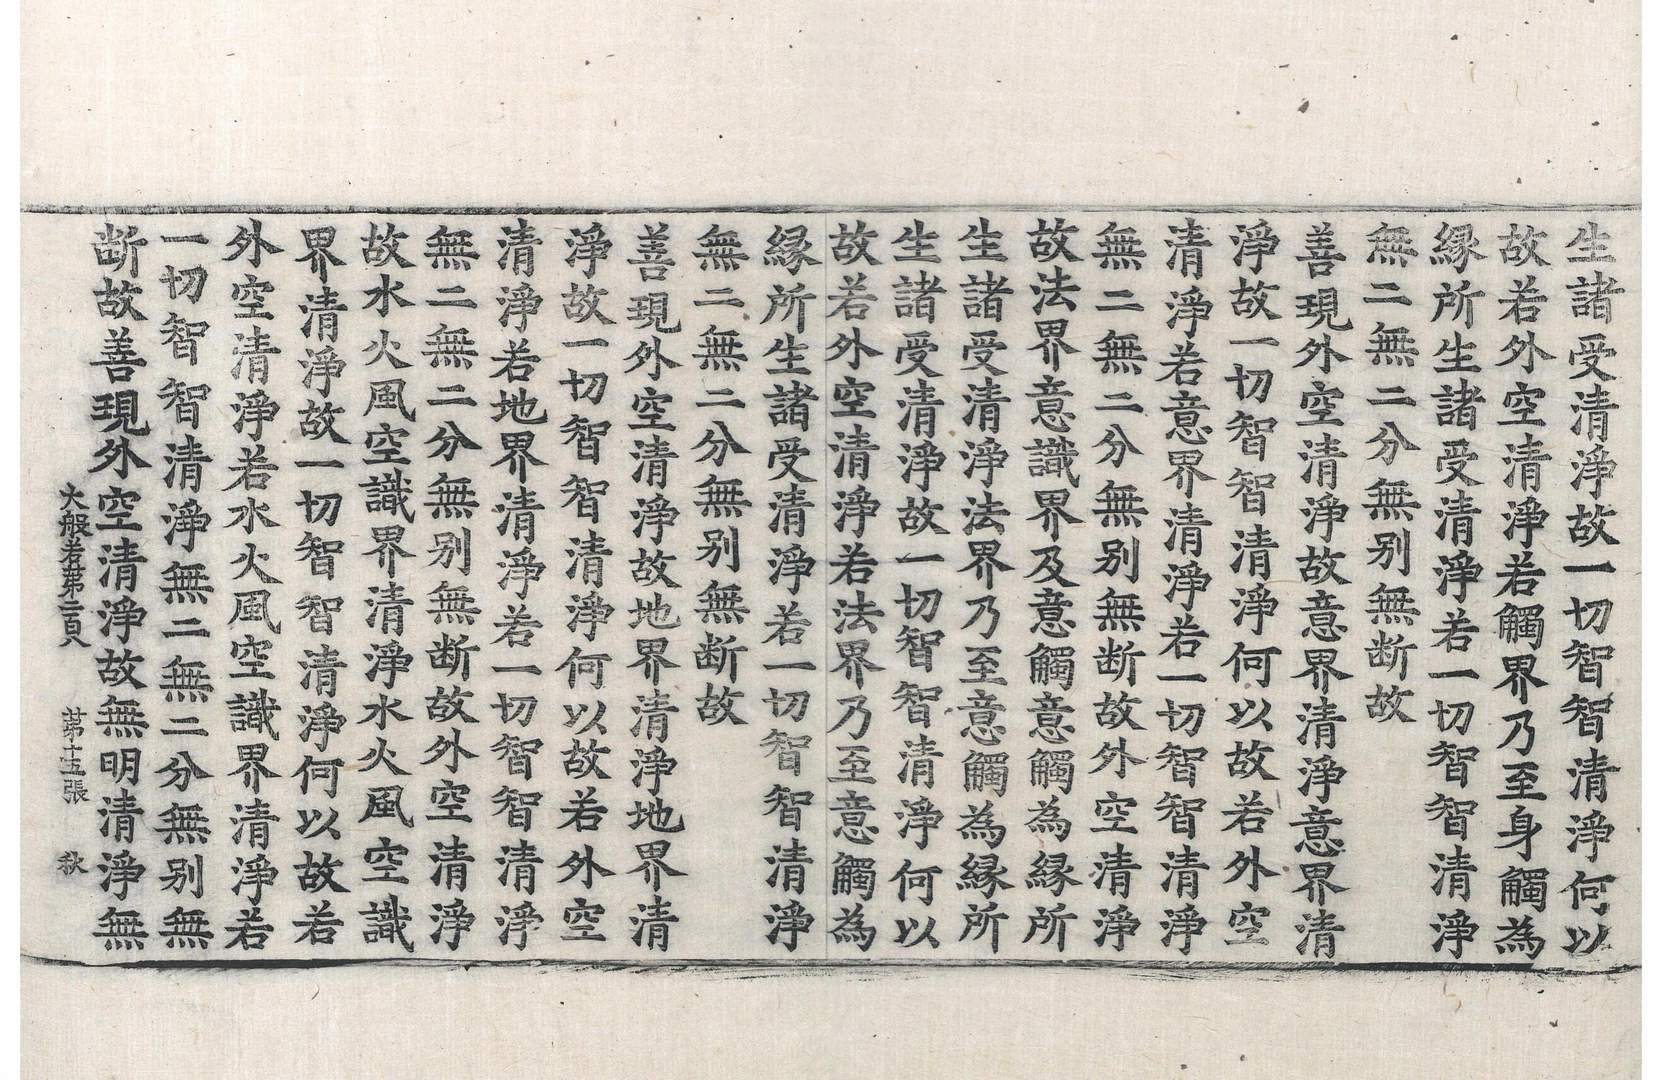 生諸受清淨故一切智智清淨何以
故若外空清淨若觸界乃至身觸為
縁所生諸受清淨若一切智智清淨
無二無二分無别無断故
善現外空清淨故意界清淨意界清
淨故一切智智清淨何以故若外空
清淨若意界清淨若一切智智清淨
無二無二分無别無断故外空清淨
故法界意識界及意觸意觸為縁所
生諸受清淨法界乃至意觸為縁所
生諸受清淨故一切智智清淨何以
故若外空清淨若法界乃至意觸為
縁所生諸受清淨若一切智智清淨
無二無二分無别無断故
善現外空清淨故地界清淨地界清
淨故一切智智清淨何以故若外空
清淨若地界清淨若一切智智清淨
無二無二分無别無断故外空清淨
故水火風空識界清淨水火風空識
界清淨故一切智智清淨何以故若
外空清淨若水火風空識界清淨若
一切智智清淨無二無二分無别無
断故善現外空清淨故無明清淨無
大般若第二百八 第十五張 秋